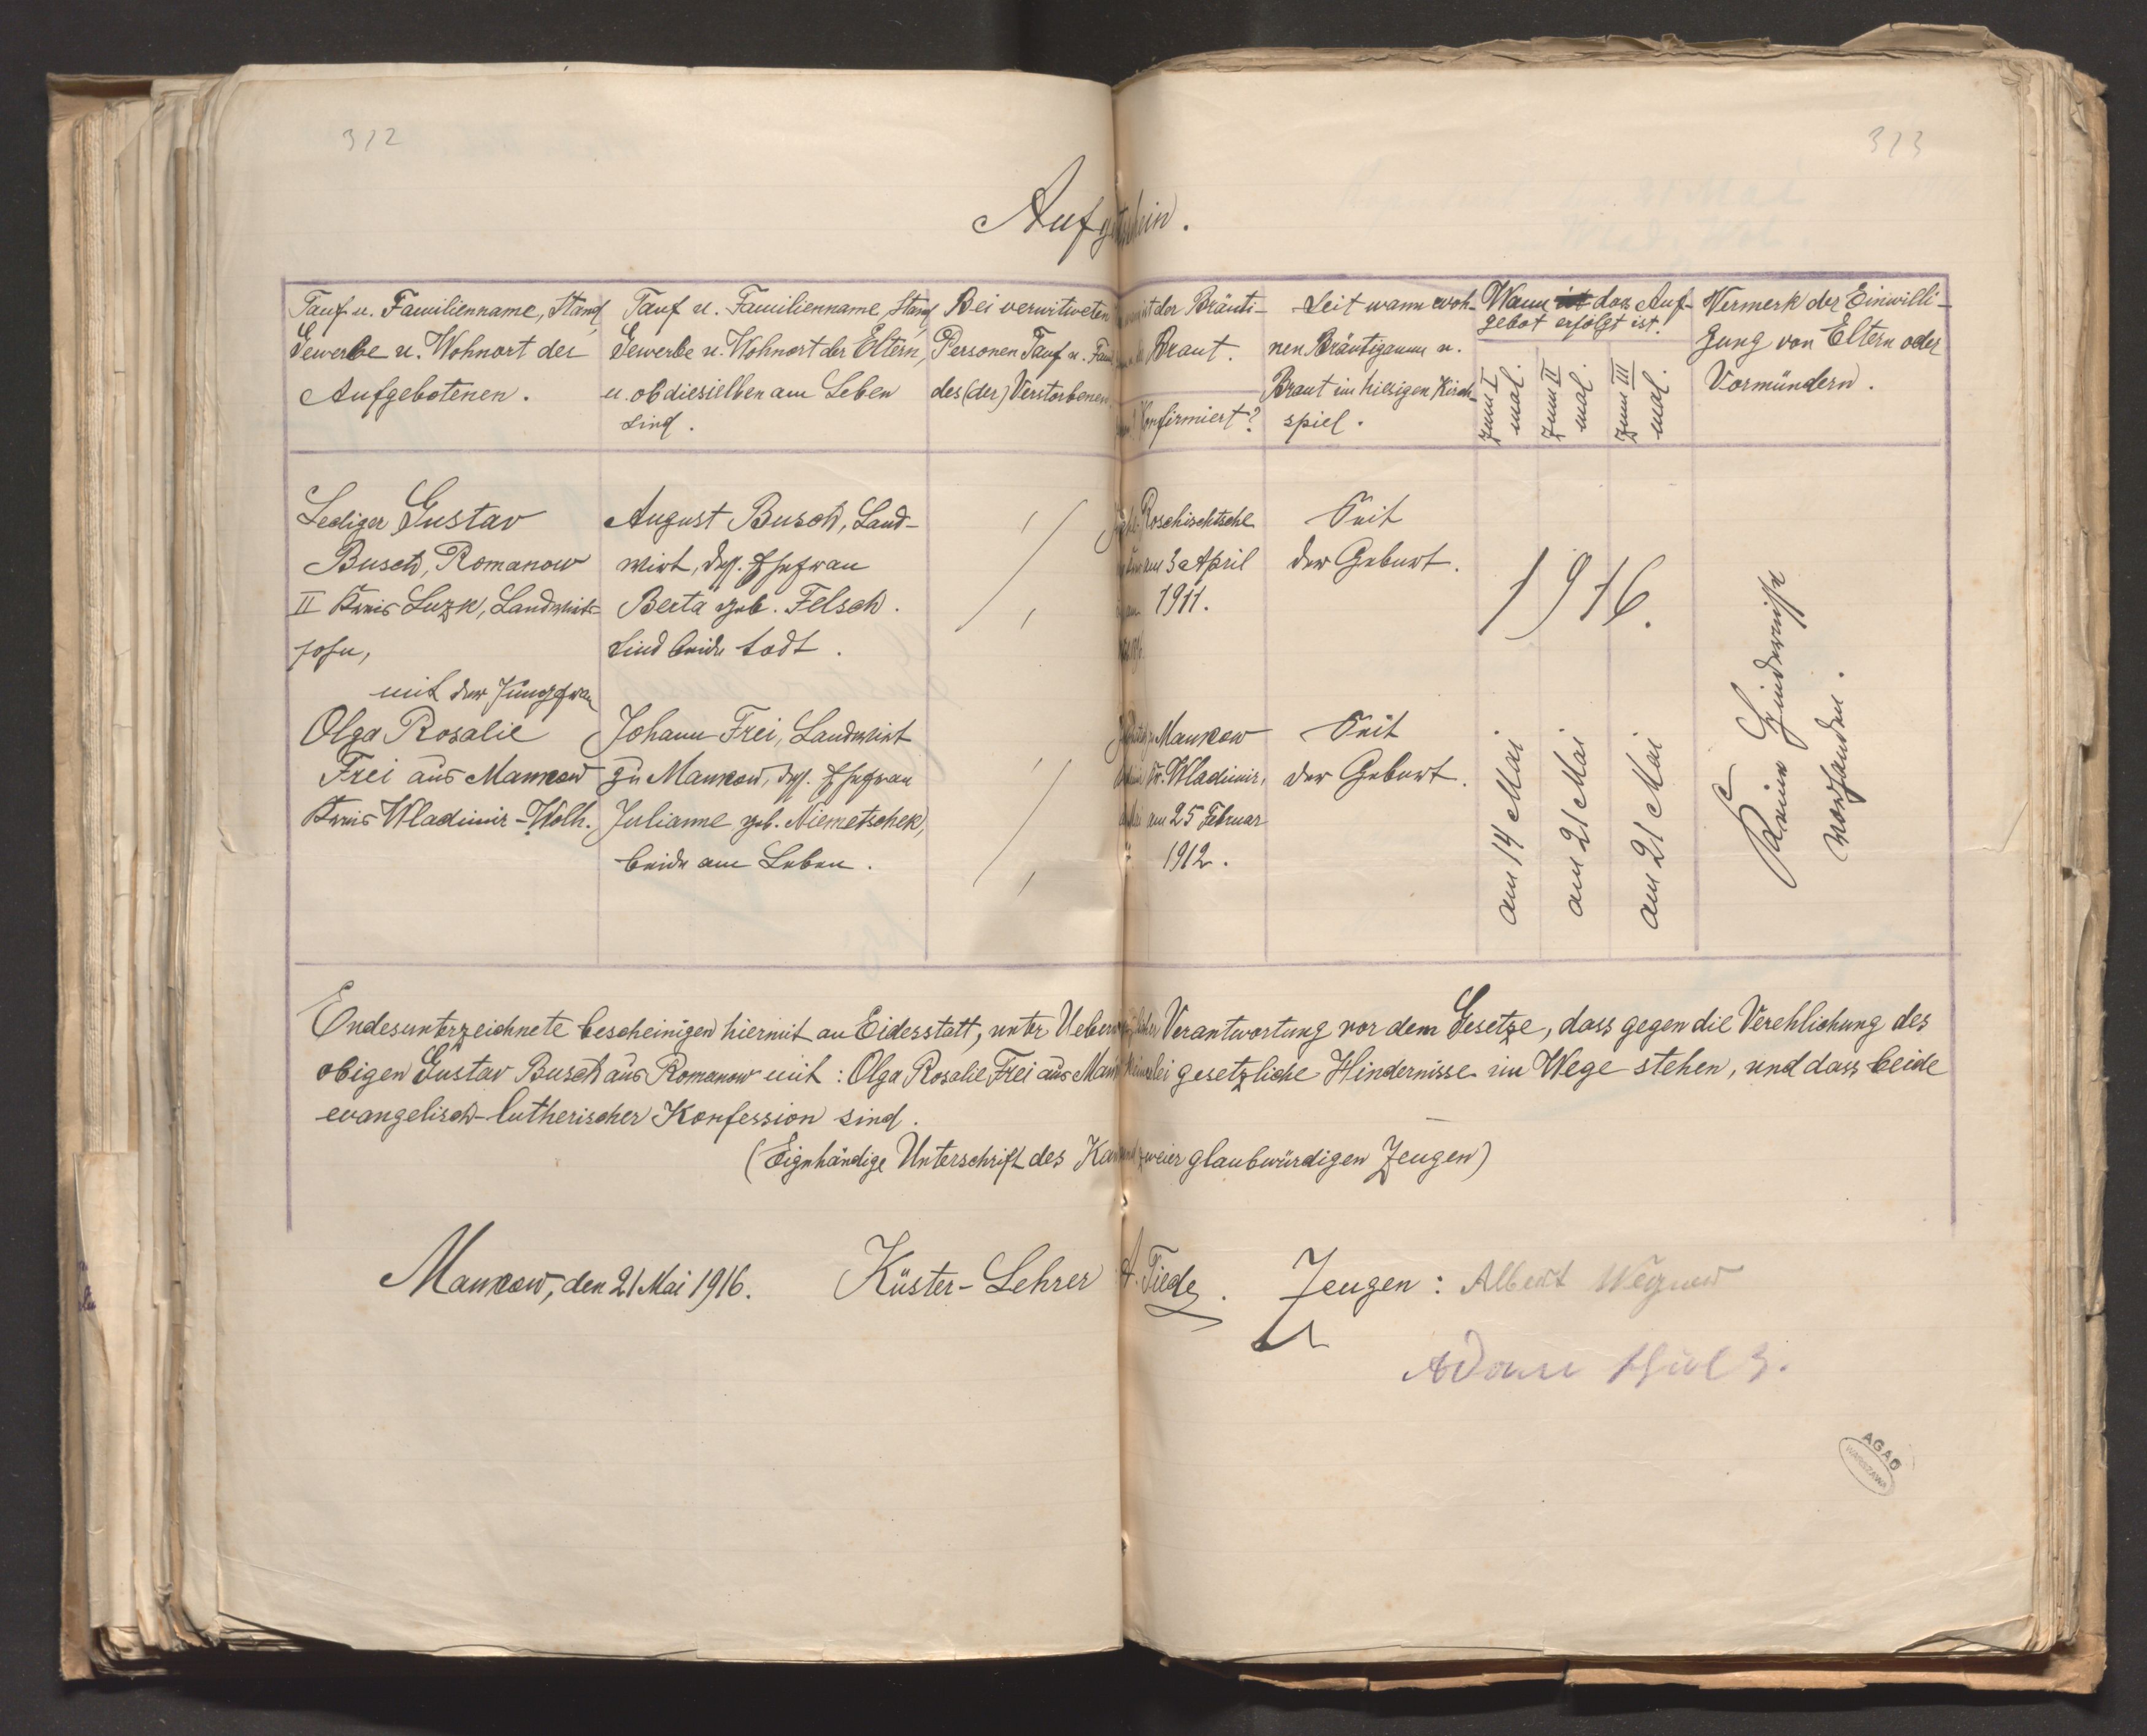 312
313
Aufg tschein.
Tauf u. Familienname, Stand,
Gewerbe u. Wohnort der
Aufgebotenen.
Tauf u. Familienname, Stand,
Gewerbe u. Wohnort der Eltern,
u. ob dieselben am Leben
sind.
Bei verwitweten
Personen Tauf u. Fam
des (der) Verstorbenen
ist der Bräuti-
Braut.
Konfirmiert?
Seit wann woh-
nen Bräutigamm u.
Braut im hiesigen Kirch-
spiel.
Wann ist das Auf-
gebot erfolgt ist!
zum I mal.
zum II mal.
zum III mal.
Vermerk der Einwilli-
gung von Eltern oder
Vormündern.
Lediger Gustav
Busch, Romanow
II Kreis Luzk, Landwirts-
sohn,
mit der Jungfrau
Olga Rosalie
Frei aus Mankow
Kreis Wladimir-Wolh.
August Busch, Land-
wirt, dess. Ehefrau
Berta geb. Felsch.
sind beide todt.
Johann Frei, Landwirt
zu Mankow, dess. Ehefrau
Julianne geb. Niemetschek,
beide am Leben.
Roschischtsche
am 3 April
1911.
Mankow
Kr. Wladimir,
am 25 Februar
1912.
Seit
der Geburt.
Seit
der Geburt.
1916.
am 14 Mai
am 21 Mai
am 21 Mai
Keine Hindernisse
vorhanden.
Endesunterzeichnete bescheinigen hiermit an Eidesstatt, unter Uebern licher Verantwortung vor dem Gesetze, dass gegen die Verehlichung des
obigen Gustav Busch aus Romanow mit: Olga Rosalie Frei aus Man keinerlei gesetzliche Hindernisse im Wege stehen, und dass beide
evangelisch-lutherischer Konfession sind.
(Eignhändige Unterschrift des Kan und zweier glaubwürdigen Zeugen)
Mankow, den 21 Mai 1916. Küster-Lehrer A. Tiede. Zeugen: Albert Wegner
Adam
AGAD
WARSZAWA